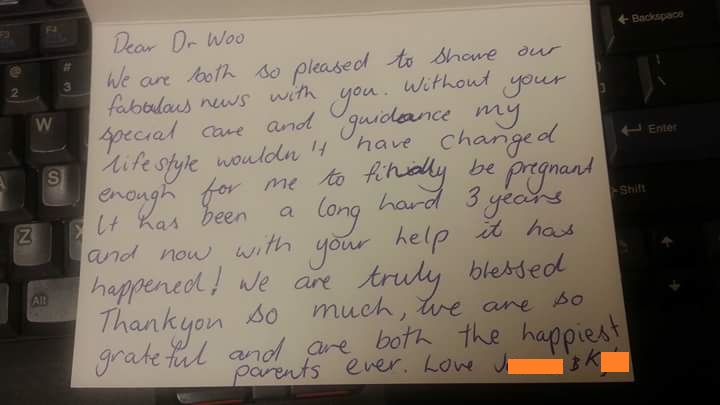 Dear Dr Woo
We are both so pleased to share our
fabulous news with you. Without your
special care and guidance my
lifestyle wouldn't have changed
enough for me to finally be pregnant
It has been a long hard 3 years
and now with your help it has
happened! We are truly blessed
Thankyou so much, we are so
grateful and are both the happiest
parents ever. Love J & K
F3
F4
@
2
#
3
W
A
S
Z
X
Alt
← Backspace
|
\
Enter
Shift